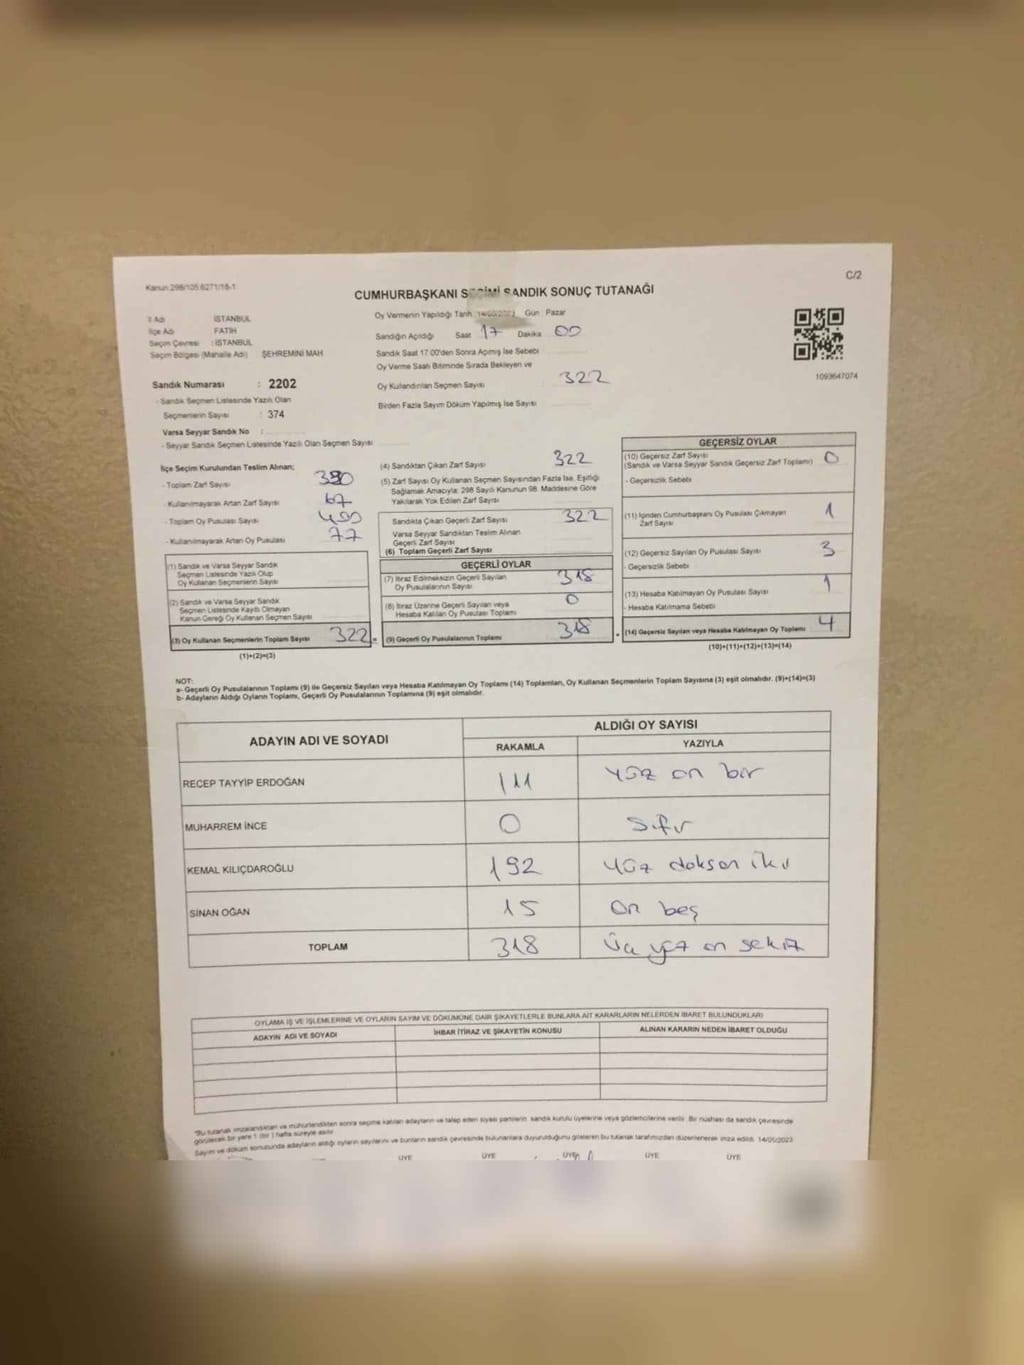 Kanun:298/105.6271/16-1
C/2
CUMHURBAŞKANI SEÇİMİ SANDIK SONUÇ TUTANAĞI
İl Adı : İSTANBUL
İlçe Adı : FATİH
Seçim Çevresi : İSTANBUL
Seçim Bölgesi (Mahalle Adı) ŞEHREMİNİ MAH
Oy Vermenin Yapıldığı Tarih : 14/05/2023 Gün : Pazar
Sandığın Açıldığı Saat 17 Dakika 00
Sandık Saat 17:00'den Sonra Açımış İse Sebebi
Oy Verme Saati Bitiminde Sırada Bekleyen ve
Oy Kullandırılan Seçmen Sayısı 322
Birden Fazla Sayım Döküm Yapılmış İse Sayısı
1093647074
Sandık Numarası : 2202
- Sandık Seçmen Listesinde Yazılı Olan
Seçmenlerin Sayısı : 374
Varsa Seyyar Sandık No :
- Seyyar Sandık Seçmen Listesinde Yazılı Olan Seçmen Sayısı
İlçe Seçim Kurulundan Teslim Alınan;
- Toplam Zarf Sayısı
- Kullanılmayarak Artan Zarf Sayısı 67
- Toplam Oy Pusulası Sayısı
- Kullanılmayarak Artan Oy Pusulası 77
(1) Sandık ve Varsa Seyyar Sandık
Seçmen Listesinde Yazılı Olup
Oy Kullanan Seçmenlerin Sayısı
(2) Sandık ve Varsa Seyyar Sandık
Seçmen Listesinde Kayıtlı Olmayan
Kanun Gereği Oy Kullanan Seçmen Sayısı
(3) Oy Kullanan Seçmenlerin Toplam Sayısı 322 =
(1)+(2)=(3)
(4) Sandıktan Çıkan Zarf Sayısı 322
(5) Zarf Sayısı Oy Kullanan Seçmen Sayısından Fazla İse, Eşitliği
Sağlamak Amacıyla; 298 Sayılı Kanunun 98. Maddesine Göre
Yakılarak Yok Edilen Zarf Sayısı
Sandıkta Çıkan Geçerli Zarf Sayısı 322
Varsa Seyyar Sandıktan Teslim Alınan
Geçerli Zarf Sayısı
(6) Toplam Geçerli Zarf Sayısı
GEÇERLİ OYLAR
(7) İtiraz Edilmeksizin Geçerli Sayılan
Oy Pusulalarının Sayısı 318
(8) İtiraz Üzerine Geçerli Sayılan veya
Hesaba Katılan Oy Pusulası Toplamı 0
(9) Geçerli Oy Pusulalarının Toplamı 318
GEÇERSİZ OYLAR
(10) Geçersiz Zarf Sayısı
(Sandık ve Varsa Seyyar Sandık Geçersiz Zarf Toplamı) 0
- Geçersizlik Sebebi
(11) İçinden Cumhurbaşkanı Oy Pusulası Çıkmayan
Zarf Sayısı 1
(12) Geçersiz Sayılan Oy Pusulası Sayısı 3
- Geçersizlik Sebebi
(13) Hesaba Katılmayan Oy Pusulası Sayısı 1
- Hesaba Katılmama Sebebi
(14) Geçersiz Sayılan veya Hesaba Katılmayan Oy Toplamı 4
(10)+(11)+(12)+(13)=(14)
NOT:
a- Geçerli Oy Pusulalarının Toplamı (9) ile Geçersiz Sayılan veya Hesaba Katılmayan Oy Toplamı (14) Toplamları, Oy Kullanan Seçmenlerin Toplam Sayısına (3) eşit olmalıdır. (9)+(14)=(3)
b- Adayların Aldığı Oyların Toplamı, Geçerli Oy Pusulalarının Toplamına (9) eşit olmalıdır.
ADAYIN ADI VE SOYADI
ALDIĞI OY SAYISI
RAKAMLA YAZIYLA
RECEP TAYYİP ERDOĞAN 111 yüz on bir
MUHARREM İNCE 0 sıfır
KEMAL KILIÇDAROĞLU 192 yüz doksan iki
SİNAN OĞAN 15 on beş
TOPLAM 318 üç yüz on sekiz
OYLAMA İŞ VE İŞLEMLERİNE VE OYLARIN SAYIM VE DÖKÜMÜNE DAİR ŞİKAYETLERLE BUNLARA AİT KARARLARIN NELERDEN İBARET BULUNDUKLARI
ADAYIN ADI VE SOYADI İHBAR İTİRAZ VE ŞİKAYETİN KONUSU ALINAN KARARIN NEDEN İBARET OLDUĞU
*Bu tutanak imzalandıktan ve mühürlendikten sonra seçime katılan adayların ve talep eden siyasi partilerin sandık kurulu üyelerine veya gözlemcilerine verilir. Bir nüshası da sandık çevresinde
görülecek bir yere 1 (bir ) hafta süreyle asılır
Sayım ve döküm sonucunda adayların aldığı oyların sayılarını ve bunların sandık çevresinde bulunanlara duyurulduğunu gösteren bu tutanak tarafımızdan düzenlenerek imza edildi. 14/05/2023
ÜYE ÜYE ÜYE ÜYE ÜYE